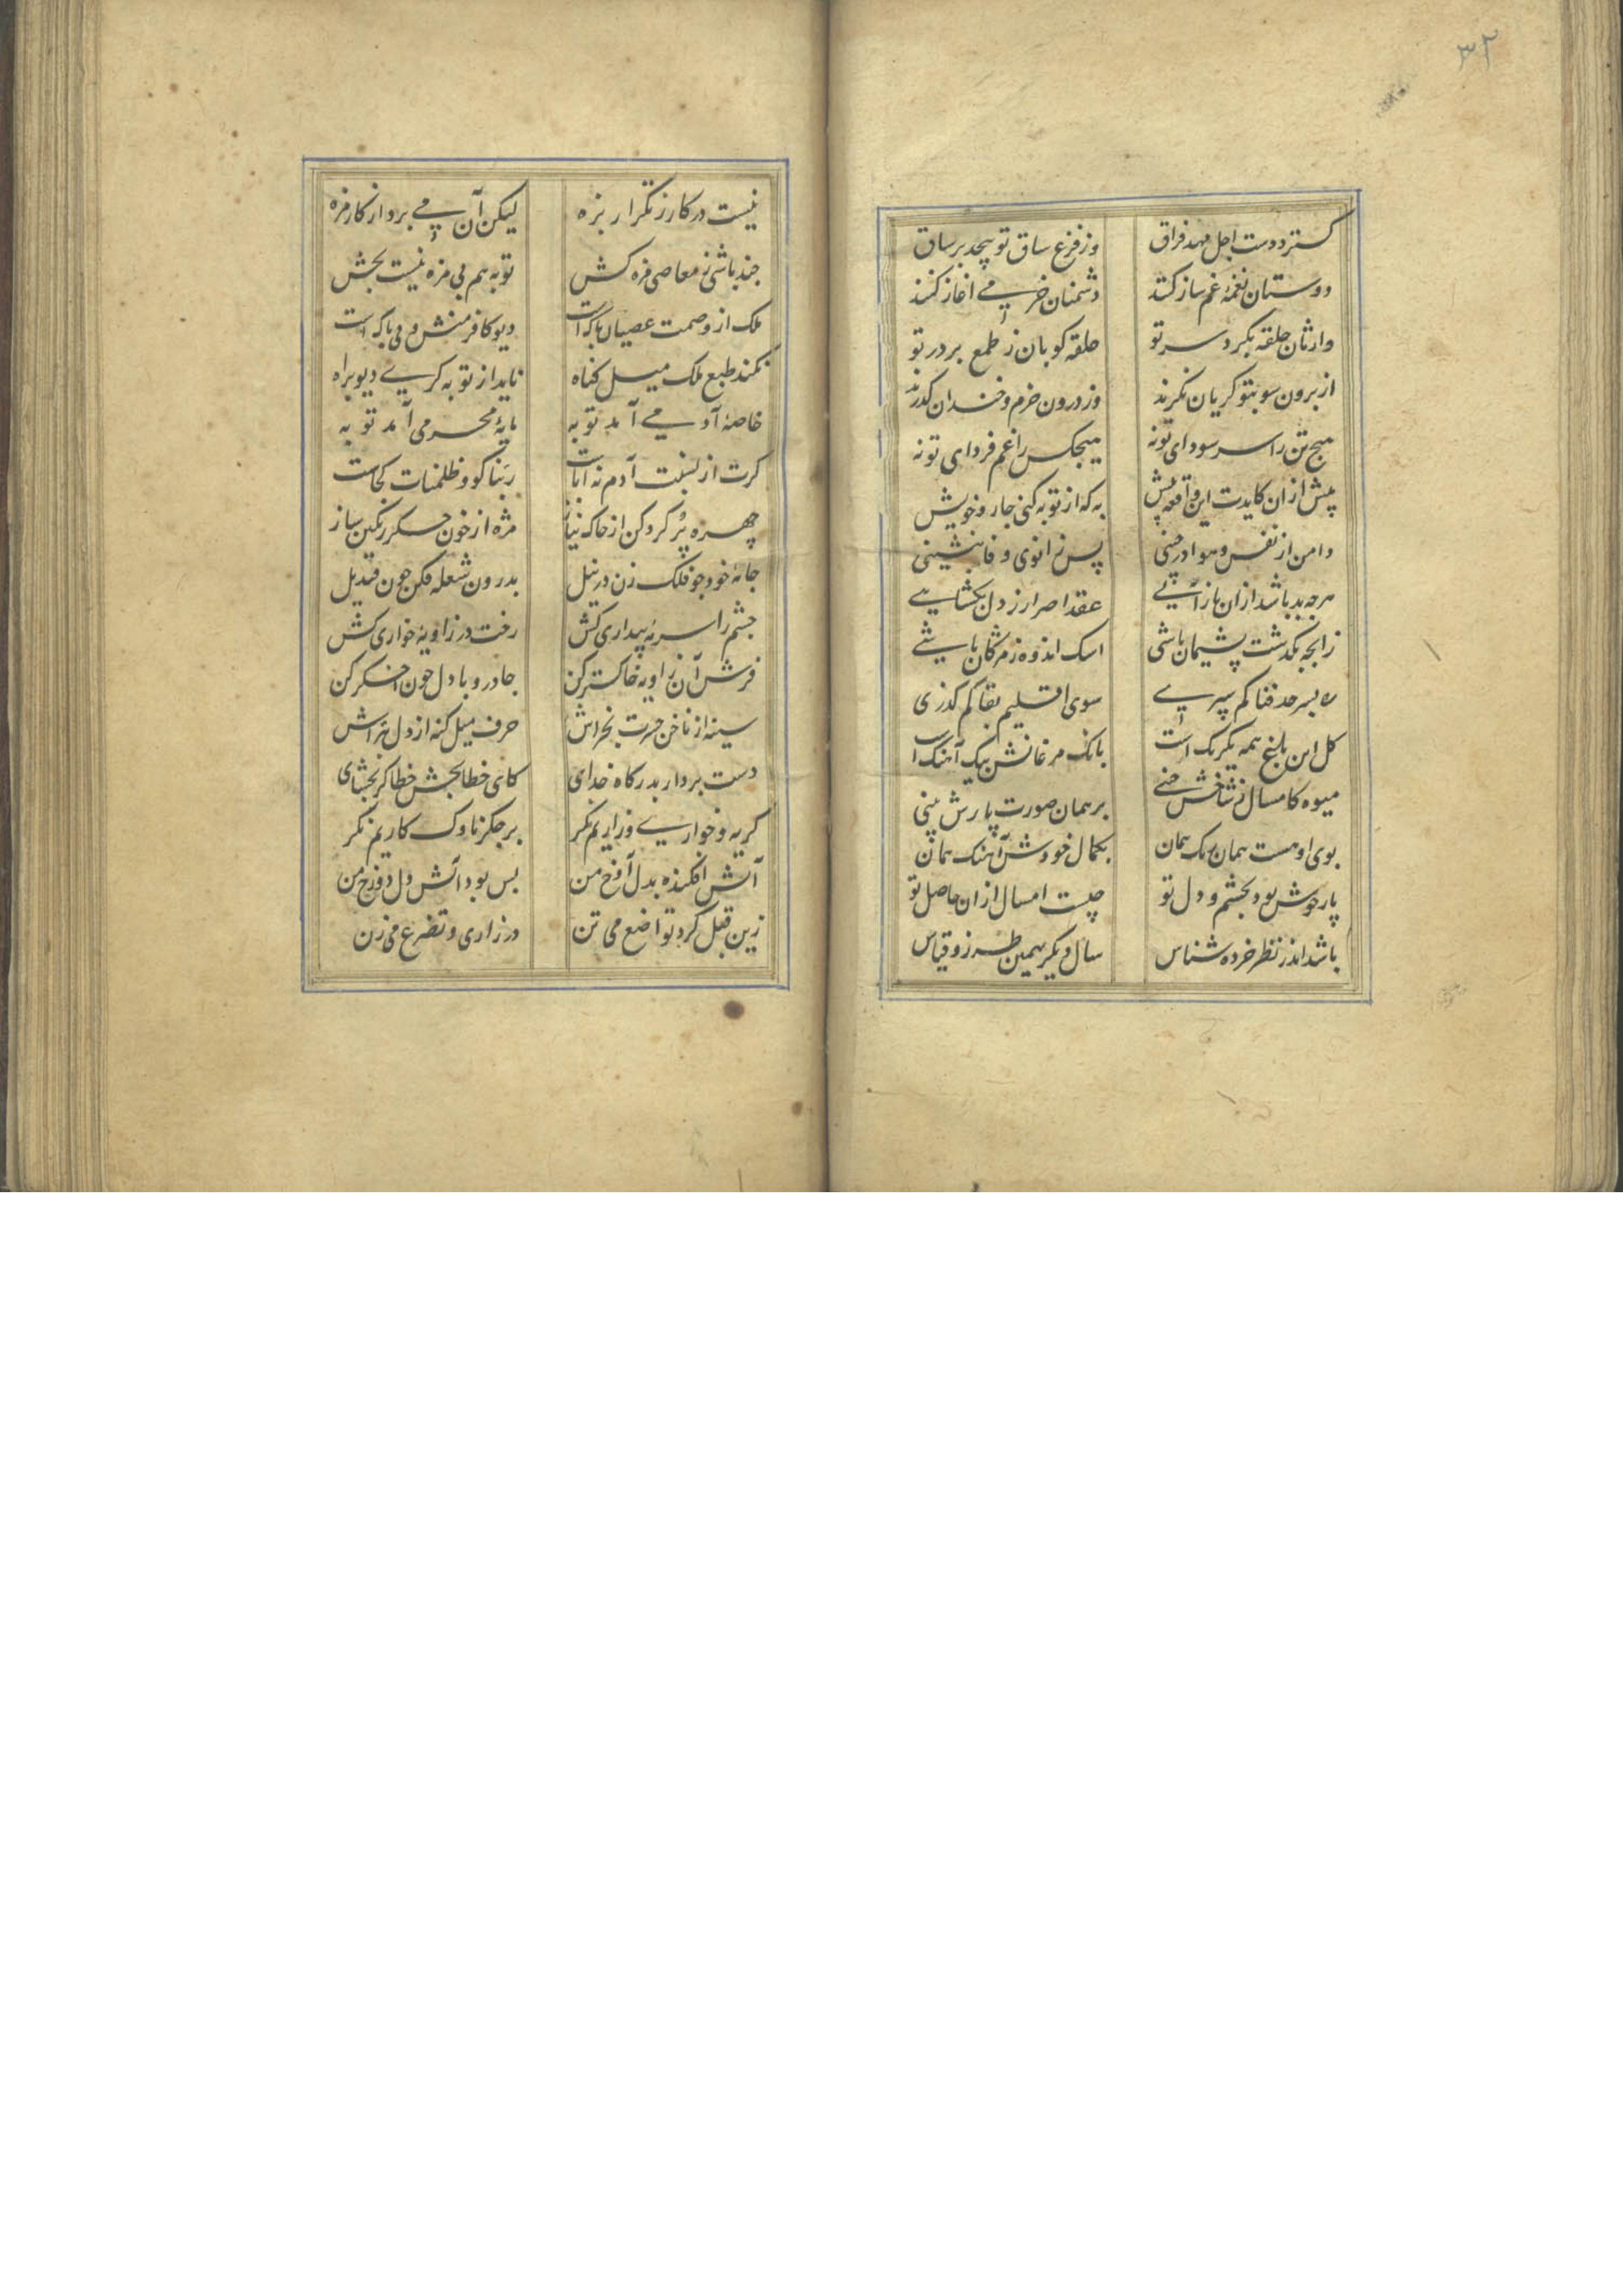 ۳۲
کسترد دست اجل مهد فراق
وز فزع ساق تو پیچد بر ساق
دوستان نغمهٔ غم ساز کنند
دشمنان خرمی آغاز کنند
وارثان حلقه بکرد سر تو
حلقه کوبان ز طمع بر در تو
از برون سو بتو کریان نکرند
وز درون خرم و خندان کذرند
هیچ تن را سر سودای تو نه
هیچکس را غم فردای تو نه
پیش از ان کایدت این واقعه پیش
به که از توبه کنی چارهٔ خویش
دامن از نفس و هوا درچینی
پس زانوی وفا بنشینی
هرچه بد باشد از ان باز آیی
عقد اصرار ز دل بکشایی
زانچه بکذشت پشیمان باشی
اشک اندوه ز مژکان پاشی
ره بسرحد فنا کم سپری
سوی اقلیم بقا کم کذری
کل این باغ همه یکرنک است
بانک مرغانش بیک آهنک است
میوه کامسال ز شاخش چینی
بر همان صورت پارش بینی
بوی او هست همان رنک همان
بکمال خودش آهنک همان
پار خوش بود بچشم و دل تو
چیست امسال از ان حاصل تو
باشد اندر نظر خرده شناس
سال دیکر بهمین طرز و قیاس
نیست در کار ز تکرار بزه
لیکن آن می برد از کار مزه
چند باشی ز معاصی مزه کش
توبه هم بی مزه نیست بچش
ملک از وصمت عصیان پاکست
دیو کافر منش و بی باکست
نکند طبع ملک میل کناه
ناید از توبه کری دیو براه
خاصهٔ آدمی آمد توبه
مایهٔ محرمی آمد توبه
کرت از نسبت آدم نه اباست
ربنا کو و ظلمنات کجاست
چهره پر کرد کن از خاک نیاز
مژه از خون جکر رنکین ساز
جامهٔ خود چو فلک زن در نیل
بدرون شعله فکن چون قندیل
چشم را سرمهٔ بیداری کش
رخت در زاویهٔ خواری کش
فرش آن زاویه خاکستر کن
جا درو با دل چون اخکر کن
سینه از ناخن حسرت بخراش
حرف میل کنه از دل بتراش
دست بردار بدرکاه خدای
کای خطابخش خطاکر بخشای
کریه و خواری و زاریم نکر
بر جکر ناوک کاریم نکر
آتش افکنده بدل آوخ من
بس بود آتش دل دوزخ من
زین قبل کرد تواضع می تن
در زاری و تضرع می زن